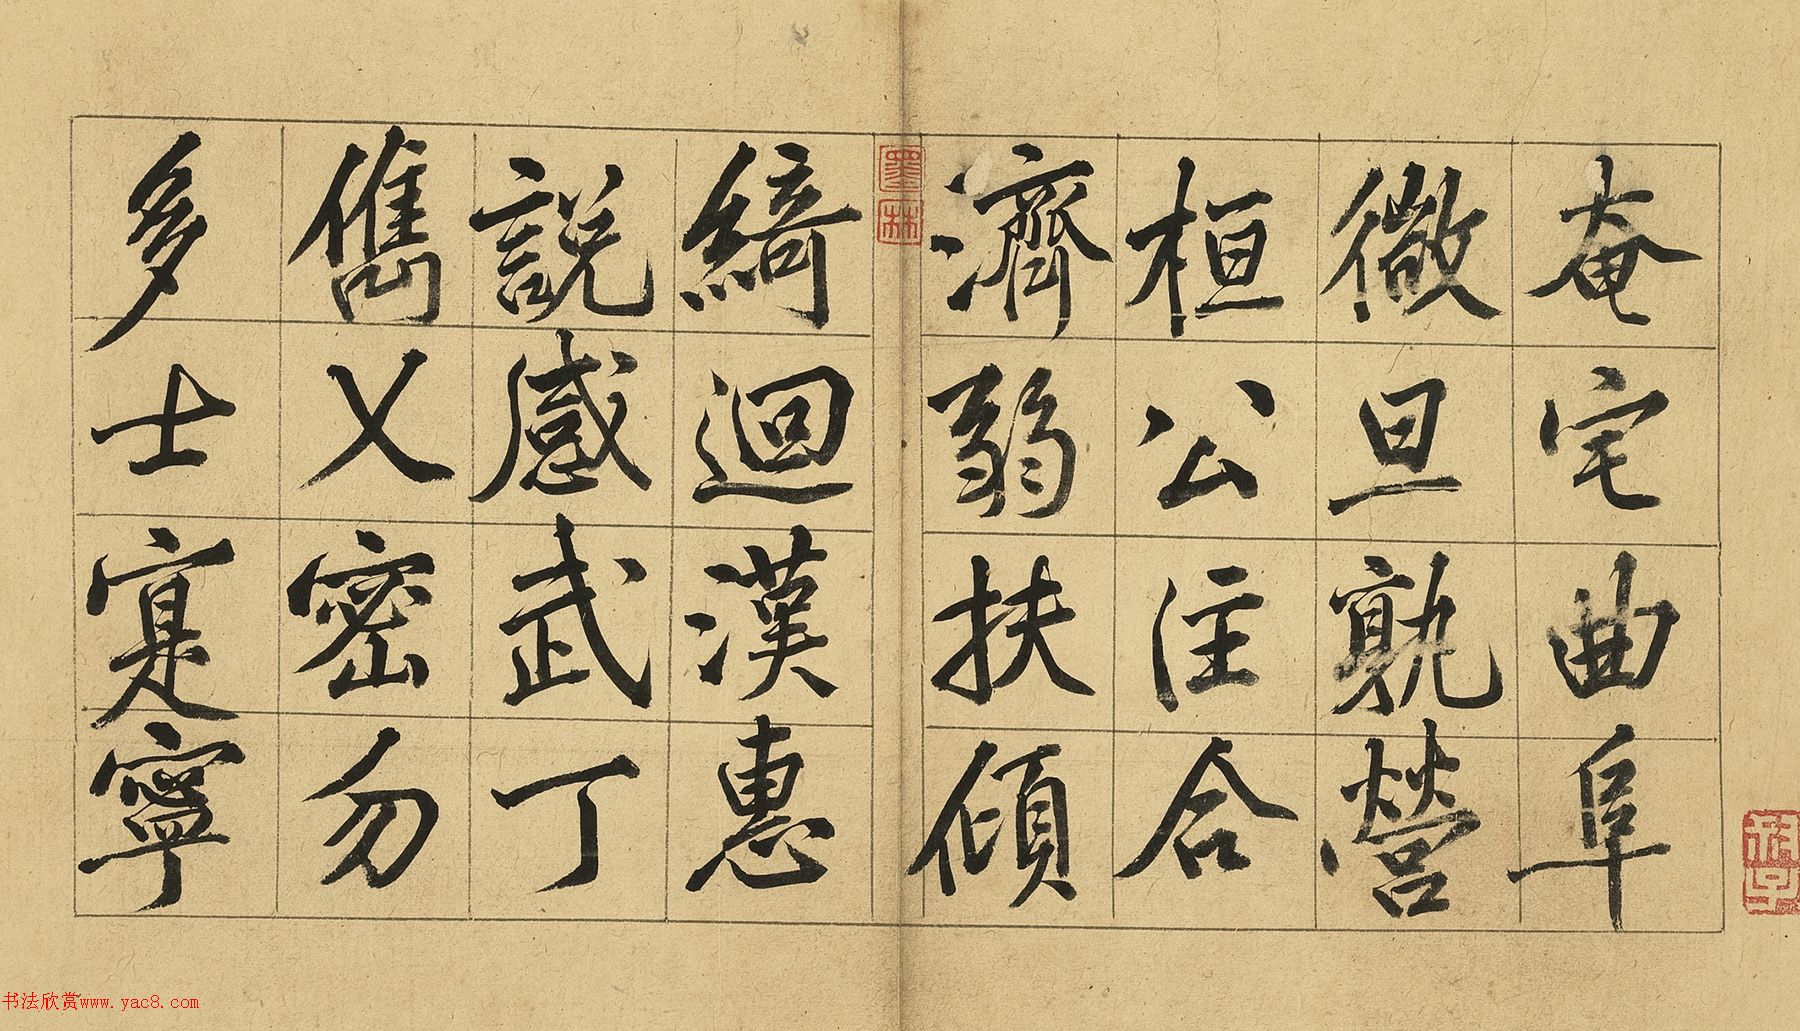 奄宅曲阜
微旦孰營
桓公匡合
濟弱扶傾
綺迴漢惠
說感武丁
儁乂密勿
多士寔寧
墨林
书法欣赏www.yac8.com